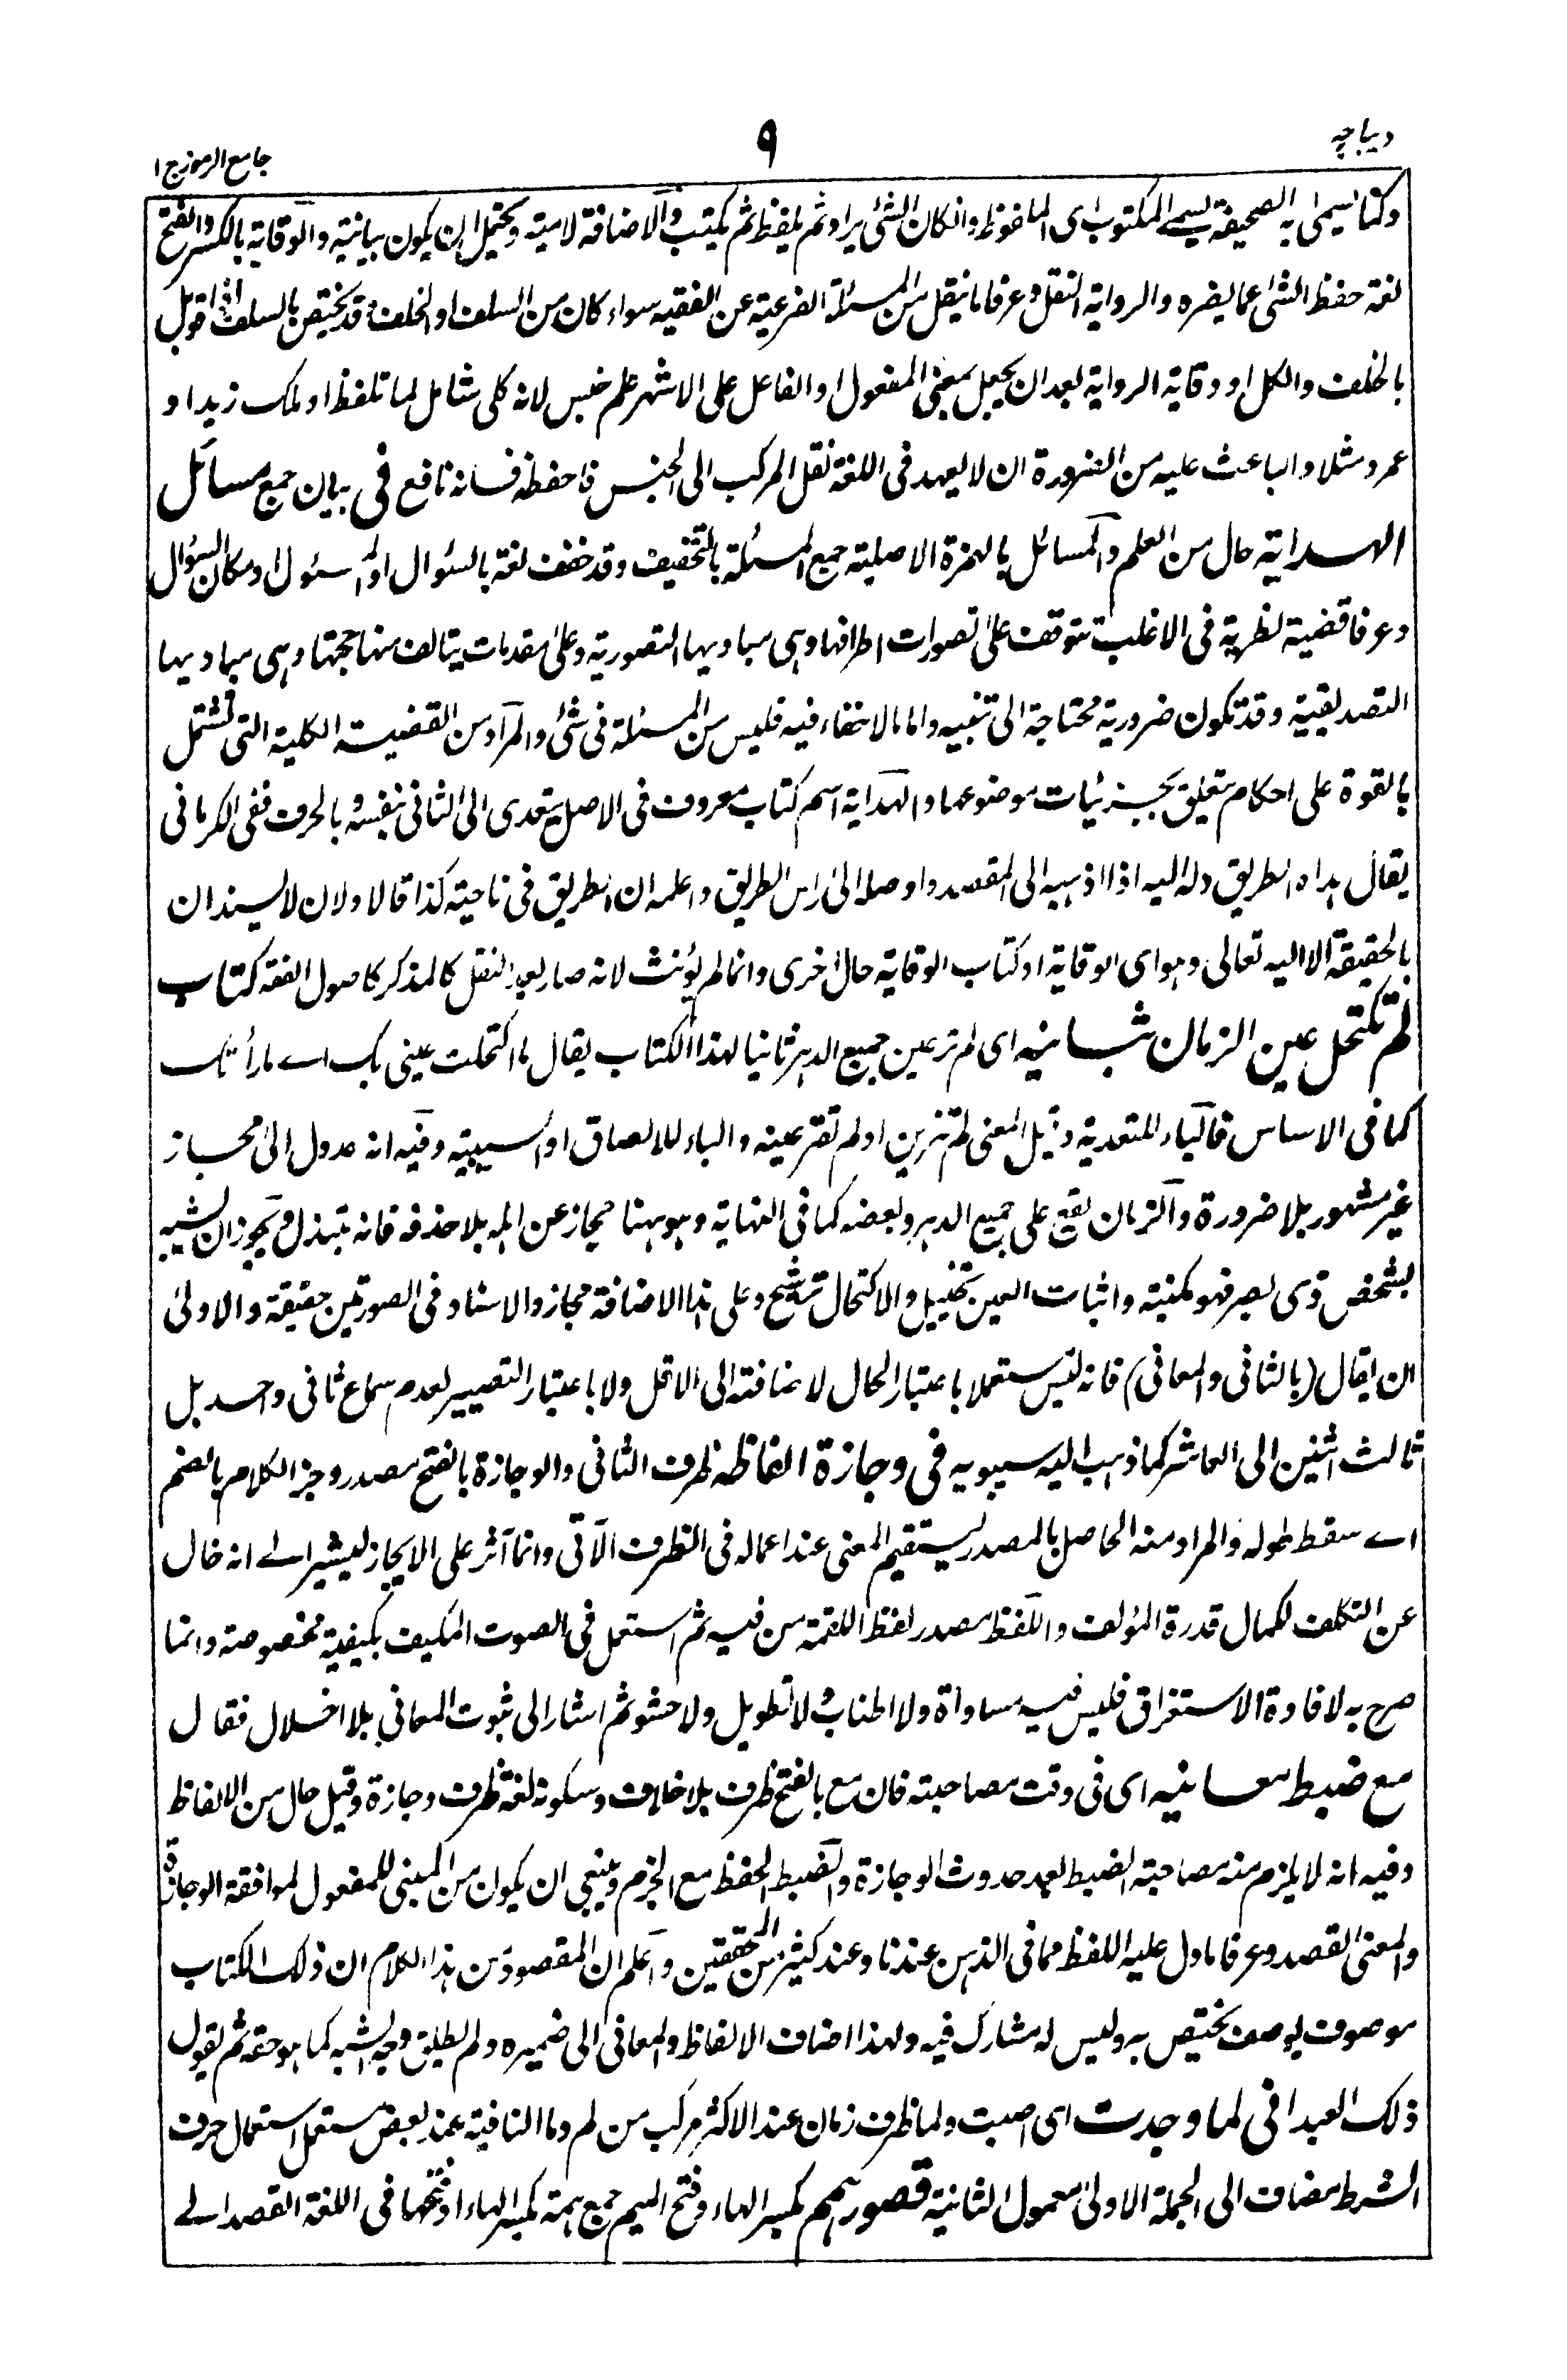 ديباجه
٩
جامع الرموز ج ١
وكما يسمى به الصحيفة يسمى المكتوب اى الملفوظ وان كان الشئ يراد ثم يلفظ ثم يكتب والاضافة لامية ويحتمل ان يكون بيانية والوقاية بالكسر والفتح
لغة حفظ الشئ عما يضره والرواية النقل وعرفا ما ينقل من المسئلة الفرعية عن الفقيه سواء كان من السلف او الخلف وقد يختص بالسلف اذا قوبل
بالخلف والكل او وقاية الرواية بعد ان يجعل بمعنى المفعول او الفاعل على الاشهر علم جنس لانه كلى شامل لما تلفظ او ملك زيد او
عمرو مثلا والباعث عليه من الضرورة ان لا يعهد فى اللغة نقل المركب الى الجنس فاحفظه فانه نافع فى بيان جميع مسائل
الهداية حال من العلم والمسائل بالهمزة الاصلية جمع المسئلة بالتخفيف وقد خفف لغة بالسئوال او المسئول او مكان السؤال
وعرفا قضية نظرية فى الاغلب تتوقف على تصورات اطرافها وهى مباديها التصورية وعلى مقدمات يتالف منها حجتها وهى مباديها
التصديقية وقد تكون ضرورية محتاجة الى تنبيه واما ما لا خفاء فيه فليس من المسئلة فى شئ والمراد من القضية الكلية التى تشتمل
بالقوة على احكام تتعلق بجزئيات موضوعها والهداية اسم كتاب معروف فى الاصل يتعدى الى الثانى بنفسه وبالحرف ففى الكرمانى
يقال هداه الطريق دله اليه اذا اذهبه الى المقصد واوصله الى راس الطريق واعلمه ان الطريق فى ناحية كذا قالا ولان لا يسندان
بالحقيقة الا اليه تعالى وهو اى الوقاية او كتاب الوقاية حال اخرى وانما لم يؤنث لانه صار بعد النقل كالمذكر كاصول الفقه كتاب
لم تكتحل عين الزمان بثانيه اى لم تر عين جميع الدهر ثانيا لهذا الكتاب يقال ما اكتحلت عينى بك اے ما رأتك
كما فى الاساس فالباء للتعدية وقيل المعنى لم تتزين او لم تقر عينه والباء للالصاق او السببية وفيه انه عدول الى مجاز
غير مشهور بلا ضرورة والزمان يقع على جميع الدهر وبعضه كما فى النهاية وهو ههنا مجاز عن اهله بلا حذف فانه مبتذل ويجوز ان يشبه
بشخص ذى بصر فهو مكنية واثبات العين تخييل والاكتحال ترشيح وعلى هذا الاضافة مجاز والاسناد فى الصورتين حقيقة والاولى
ان يقال (بالثانى والمعانى) فانه ليس مستعملا باعتبار الحال لاضافته الى الاقل ولا باعتبار التصيير لعدم سماع ثانى واحد بل
ثالث اثنين الى العاشر كما ذهب اليه سيبويه فى وجازة الفاظه ظرف الثانى والوجازة بالفتح مصدر وجز الكلام بالضم
اے سقط طوله والمراد منه الحاصل بالمصدر ليستقيم المعنى عند اعماله فى الظرف الآتى وانما آثر على الايجاز ليشير اے انه خال
عن التكلف لكمال قدرة المؤلف واللفظ مصدر لفظ اللقمة من فيه ثم استعمل فى الصوت المكيف بكيفية مخصوصة وانما
صرح به لافادة الاستغراق فليس فيه مساواة ولا اطناب ولا تطويل ولا حشو ثم اشار الى ثبوت المعانى بلا اخلال فقال
مع ضبط معانيه اى فى وقت مصاحبته فان مع بالفتح ظرف بلا خلاف وسكونه لغة ظرف وجازة وقيل حال من الالفاظ
وفيه انه لا يلزم منه مصاحبة الضبط بعد حدوث الوجازة والضبط الحفظ مع الجزم وينبغى ان يكون من المبنى للمفعول لموافقة الوجازة
والمعنى القصد وعرفا ما دل عليه اللفظ مما فى الذهن عندنا وعند كثير من المحققين واعلم ان المقصود من هذا الكلام ان ذلك الكتاب
موصوف بوصف يختص به وليس له مشارك فيه ولهذا اضاف الالفاظ والمعانى الى ضميره ولم يطلق وجه الشبه كما هو حقه ثم يقول
ذلك العبد انى لما وجدت اى اصبت ولما ظرف زمان عند الاكثر مركب من لم وما النافية عند بعض مستعمل استعمال حرف
الشرط مضاف الى الجملة الاولى معمول الثانية قصور همم بكسر الهاء وفتح الميم جمع همة بكسر الهاء او فتحها فى اللغة القصد الے